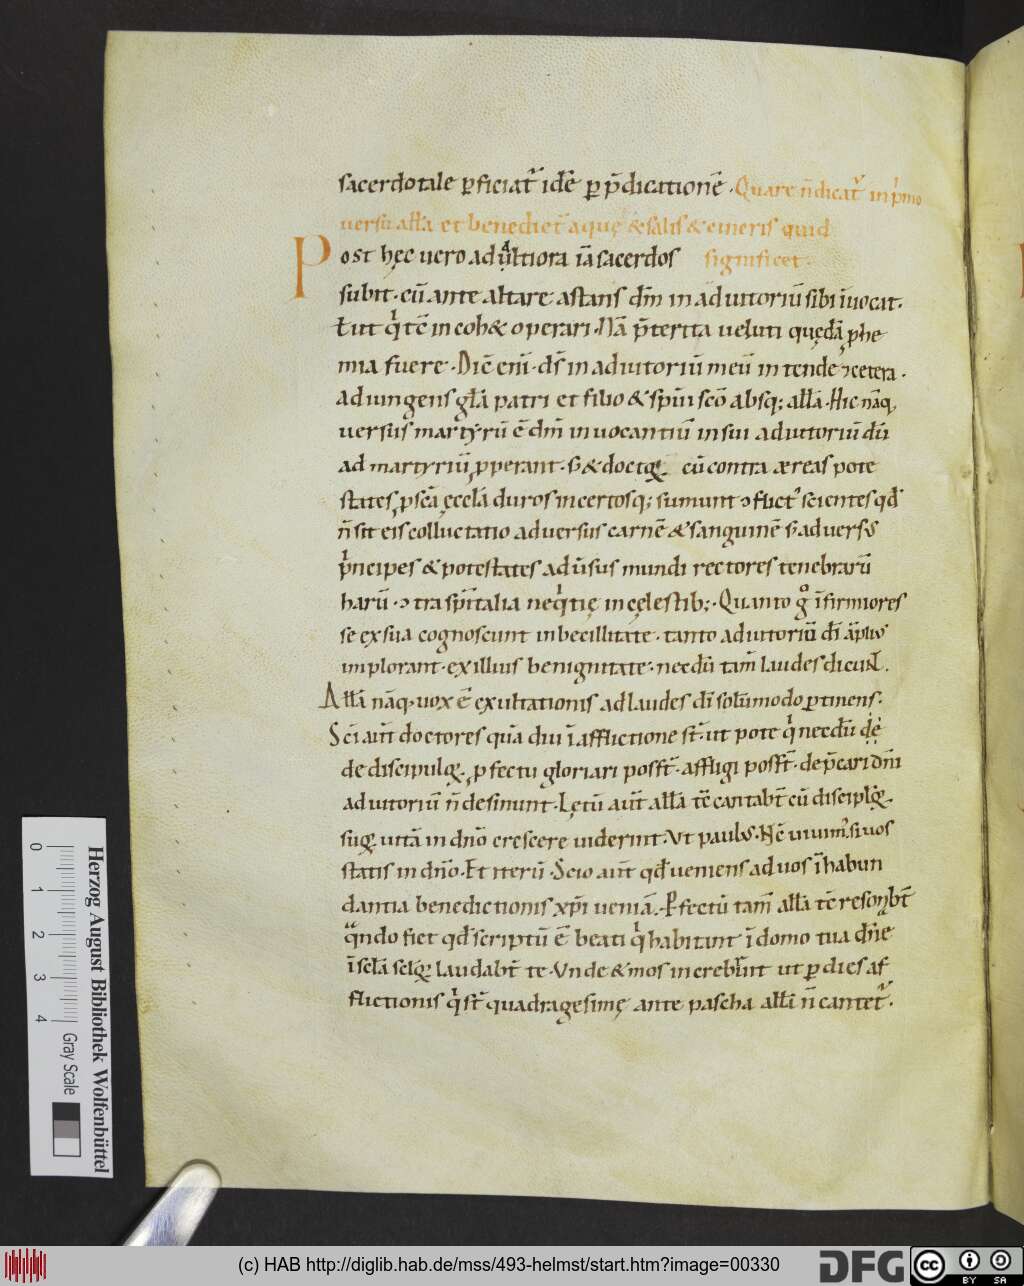 sacerdotale ꝑficiat᷑ idē ꝑ p̄dicationē. Quare n̄ dicat᷑ in pͥmo
versu all̄a et benedict̄ aquę & salis & cineris quid
Post hęc uero ad ulteriora iā sacerdos significet.
subit. cū ante altare astans dm̄ in adiutoriū sibi īuocat.
in cob& operari. Nā p̄terita ueluti quędā phe
mia fuere. Dic̄ eni. ds̄ in adiutoriū meū intende ⁊ cetera.
adiungens gl̄a patri et filio & spūi scō absq; all̄a. Hic nāq,
uersus martyrū ē dm̄ inuocantiū in sui adiutoriū dū
ad martyriū ꝓperant. s; & doctoꝝ cū contra aereas pote
states ꝓ scā ęccl̄a duros incertosq; sumunt ꝯflict᷑ scientes qd̄
n̄ sit eis colluctatio aduersus carnē & sanguinē s; aduersus
pͥncipes & potestates aduersus mundi rectores tenebrarū
harū. ꝯtra spiritalia neqͥtię in cęlestib;. Quanto gͦ īfirmiores
se ex sua cognoscunt inbecillitate. tanto adiutoriū dī āplius
implorant. ex illius benignitate. necdū tam̄ laudes dicunt.
All̄a nāq, uox ē exultationis ad laudes dī solūmodo ꝑtinens.
Sci aūt doctores quādiu ī afflictione st̄. ut pote qͥ necdū
de discipuloꝝ ꝓfectu gloriari posst̄. affligi posst̄. dep̄cari dn̄i
adiutoriū n̄ desinunt. Lętū aūt all̄a tc̄ cantabt̄ cū discipl̄oꝝ
suoꝝ uitā in dnō crescere uiderint. Ut paulus. Nc̄ uiuim᷒ si uos
statis in dnō. Et iterū. Scio aūt qd̄ ueniens ad uos ī habun
dantia benedictionis xp̄i ueniā. Ꝑfectū tam̄ all̄a tc̄ resonabt̄
qͣndo fiet qd̄ scriptū ē beati qͥ habitant ī domo tua dn̄e
ī scl̄a scl̄oꝝ laudabt̄ te. Unde & mos increbuit ut ꝑ dies af
flictionis qͥ st̄ quadragesimę ante pascha all̄a n̄ cantet᷑.
0 1 2 3 4
Gray Scale
Herzog August Bibliothek Wolfenbüttel
(c) HAB http://diglib.hab.de/mss/493-helmst/start.htm?image=00330
DFG
cc BY SA